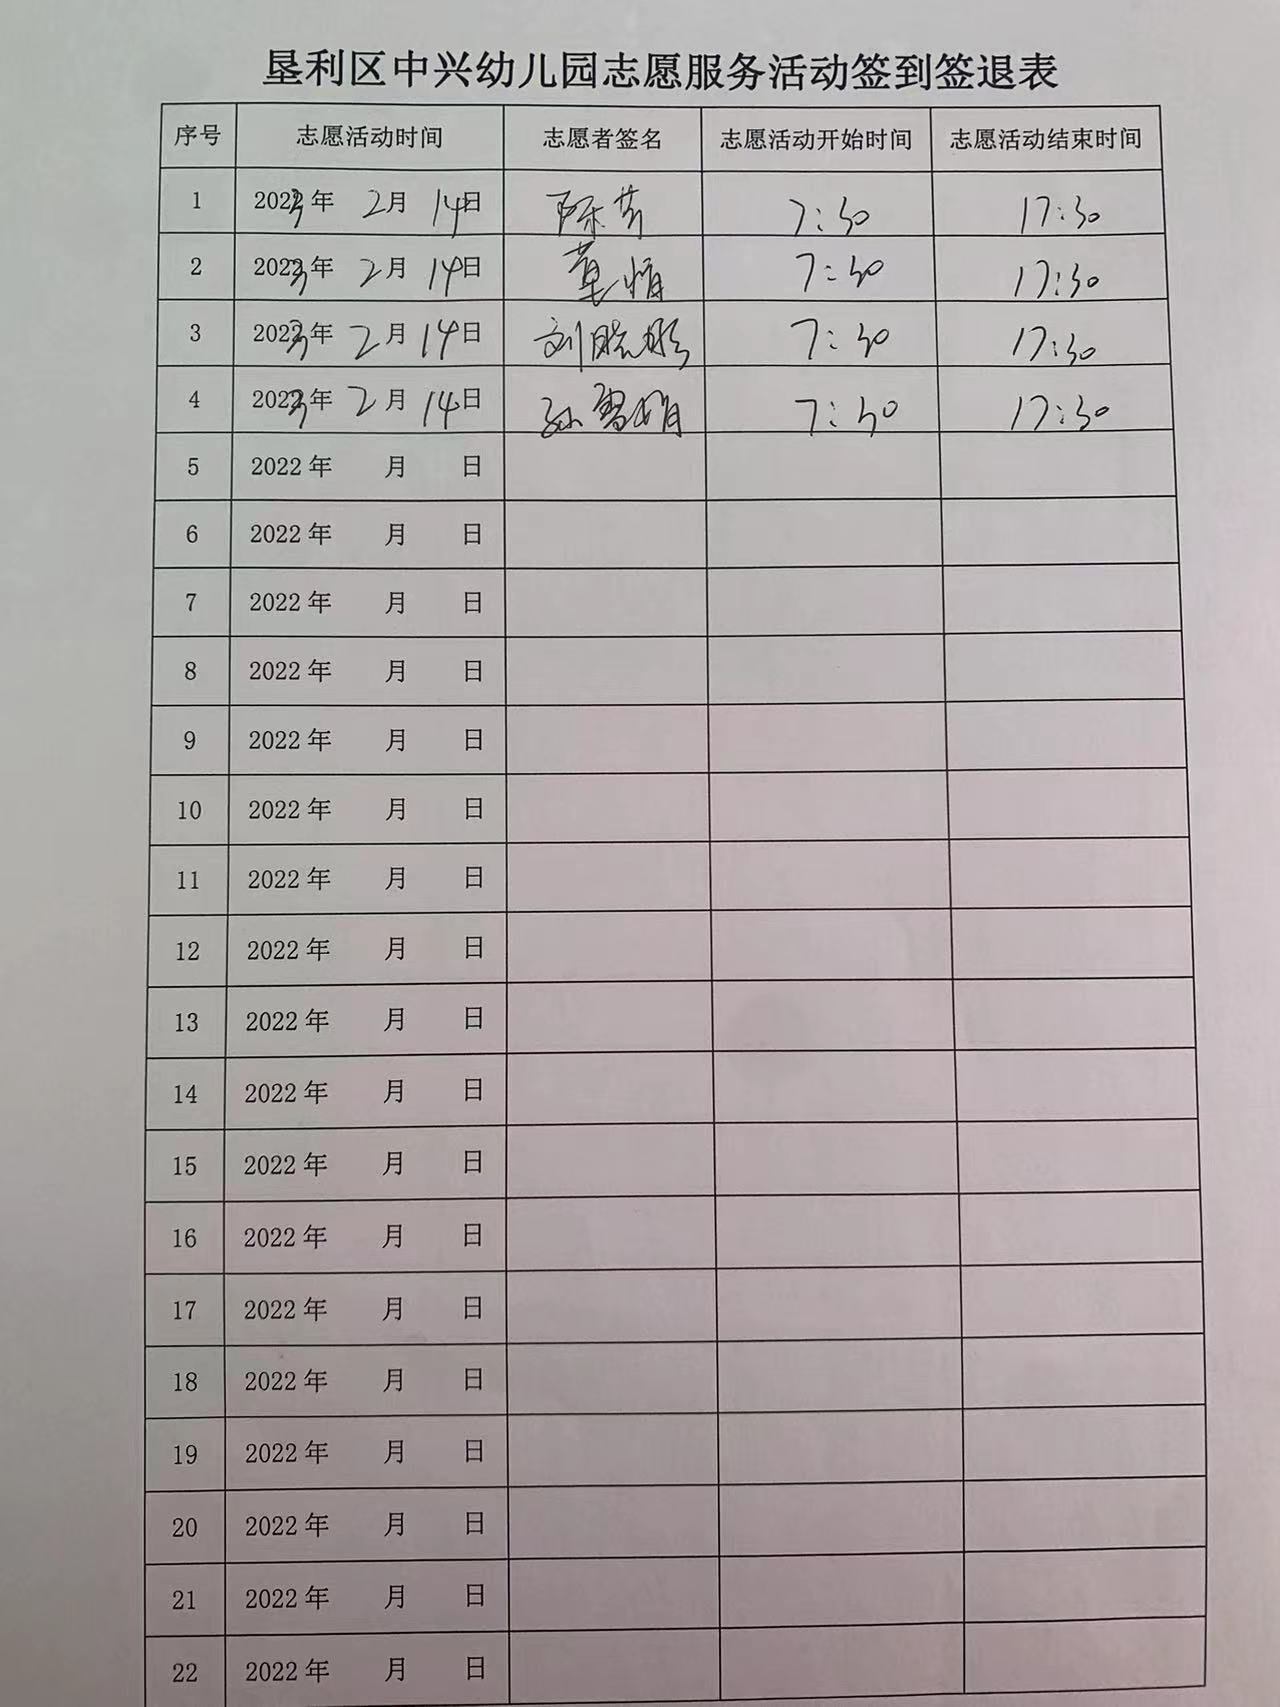 垦利区中兴幼儿园志愿服务活动签到签退表
序号 志愿活动时间 志愿者签名 志愿活动开始时间 志愿活动结束时间
1 2023年 2月 14日 陈芳 7:30 17:30
2 2023年 2月 14日 7:30 17:30
3 2023年 2月 14日 刘晓彤 7:30 17:30
4 2023年 2月 14日 孙雪娟 7:30 17:30
5 2022年 月 日
6 2022年 月 日
7 2022年 月 日
8 2022年 月 日
9 2022年 月 日
10 2022年 月 日
11 2022年 月 日
12 2022年 月 日
13 2022年 月 日
14 2022年 月 日
15 2022年 月 日
16 2022年 月 日
17 2022年 月 日
18 2022年 月 日
19 2022年 月 日
20 2022年 月 日
21 2022年 月 日
22 2022年 月 日